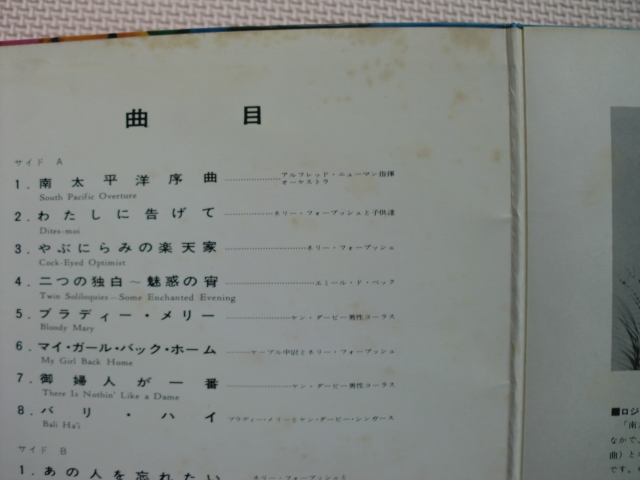 曲目
サイド A
1. 南太平洋序曲 アルフレッド・ニューマン指揮 オーケストラ
South Pacific Overture
2. わたしに告げて ネリー・フォーブッシュと子供達
Dites-moi
3. やぶにらみの楽天家 ネリー・フォーブッシュ
Cock-Eyed Optimist
4. 二つの独白～魅惑の宵 エミール・ド・ベック
Twin Soliloquies—Some Enchanted Evening
5. ブラディー・メリー ケン・ダービー男性コーラス
Bloody Mary
6. マイ・ガール・バック・ホーム ケーブル中尉とネリー・フォーブッシュ
My Girl Back Home
7. 御婦人が一番 ケン・ダービー男性コーラス
There Is Nothin' Like a Dame
8. バリ・ハイ ブラディー・メリーとケン・ダービー・シンガース
Bali Ha'i
サイド B
1. あの人を忘れたい ネリー・フォーブッシュと
■ロジ
「南
なかで、
曲）と
です。